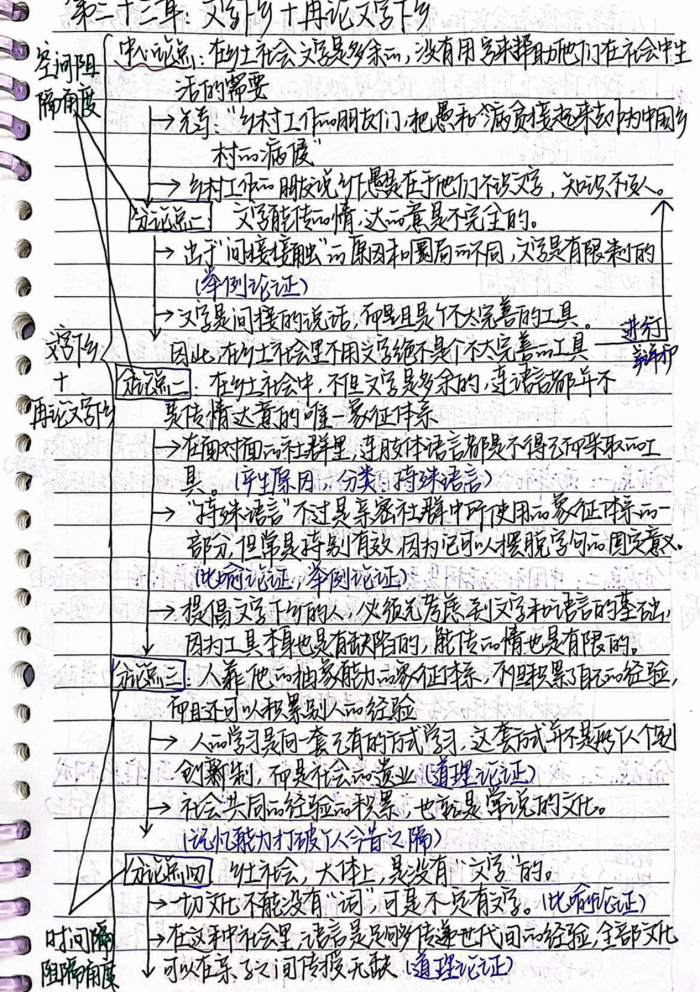 第二十三章：文字下乡＋再论文字下乡
空间阻
隔角度
中心论点：在乡土社会文字是多余的，没有用字来帮助他们在社会中生
活的需要
→先导："乡村工作的朋友们，把愚和病贫接起来去认为中国乡
村的病候"
→乡村工作的朋友说乡下愚是在于他们不识文字，知识不及人。
分论点二 文字能传的情、达的意是不完全的。
→出于"间接接触"的原因和圜局的不同，文字是有限制的
(举例论证)
→文字是间接的说话，而且是个不太完善的工具。
因此，在乡土社会里不用文字绝不是个不太完善的工具
进行
辩析
文字下乡
＋
再论文字下乡
分论点一：在乡土社会中，不但文字是多余的，连语言都并不
是传情达意的唯一象征体系
→在面对面的社群里，连肢体语言都是不得已而采取的工
具。(产生原因、分类、特殊语言)
→"特殊语言"不过是亲密社群中所使用的象征体系的一
部分，但常是特别有效，因为它可以摆脱字句的固定意义。
(比喻论证、举例论证)
→提倡文字下乡的人，必须先考虑到文字和语言的基础，
因为工具本身也是有缺陷的，能传的情也是有限的。
分论点三：人靠他的抽象能力和象征体系，不但积累了自己的经验，
而且还可以积累别人的经验
→人的学习是向一套已有的方式学习，这套方式并不是每个人个别
创制，而是社会的遗业(道理论证)
→社会共同的经验的积累，也就是常说的文化。
(记忆能力打破个人今昔之隔)
分论点四：乡土社会，大体上，是没有"文字"的。
→一切文化不能没有"词"，可是不一定有文字。(比喻论证)
时间隔
阻隔角度
→在这种社会里，语言是足够传递世代间的经验，全部文化
可以在亲子之间传授无缺(道理论证)